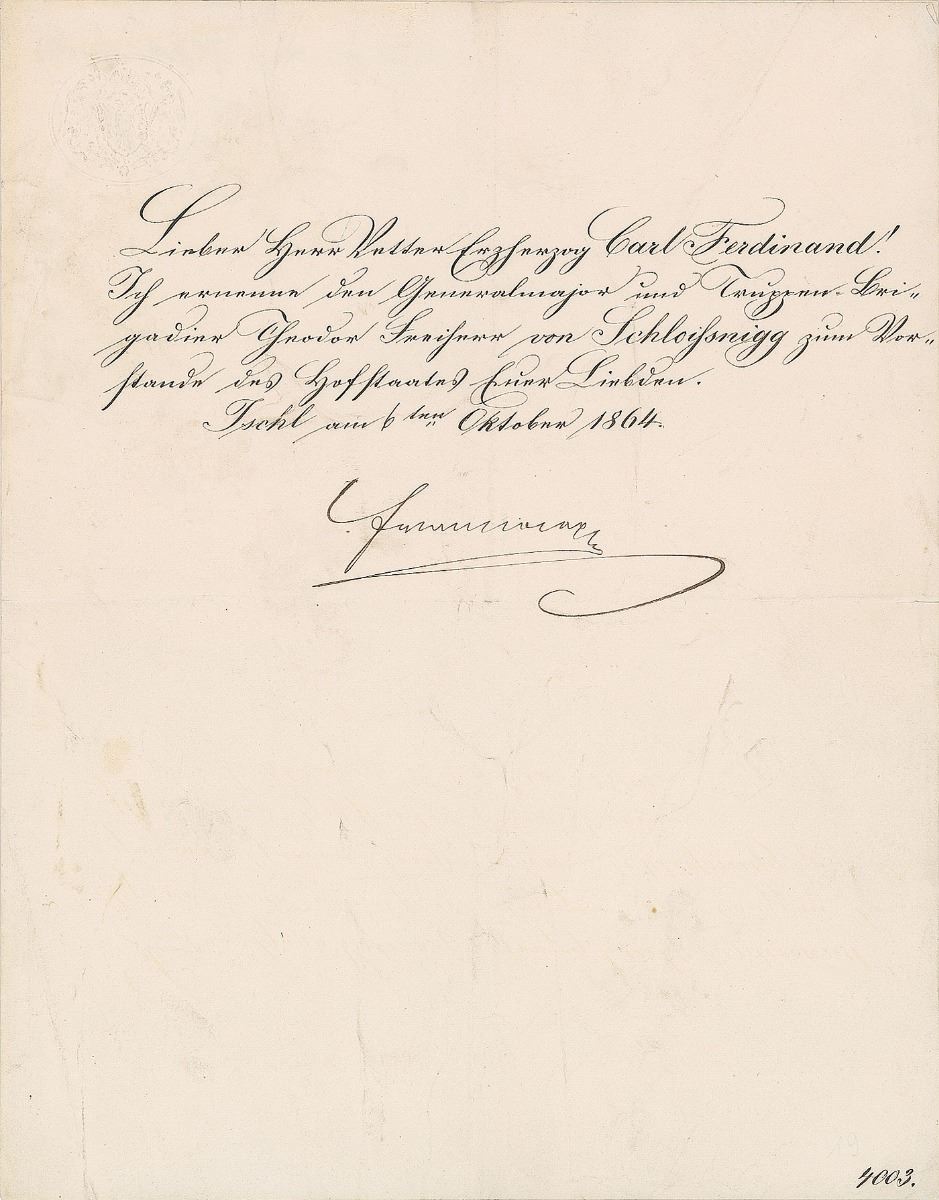 Lieber Herr Vetter Erzherzog Carl Ferdinand!
Ich ernenne den Generalmajor und Truppen-Bri-
gadier Theodor Freiherr von Schloißnigg zum Vor-
stande des Hofstaates Euer Liebden.
Ischl am 6ten Oktober 1864.
4003.